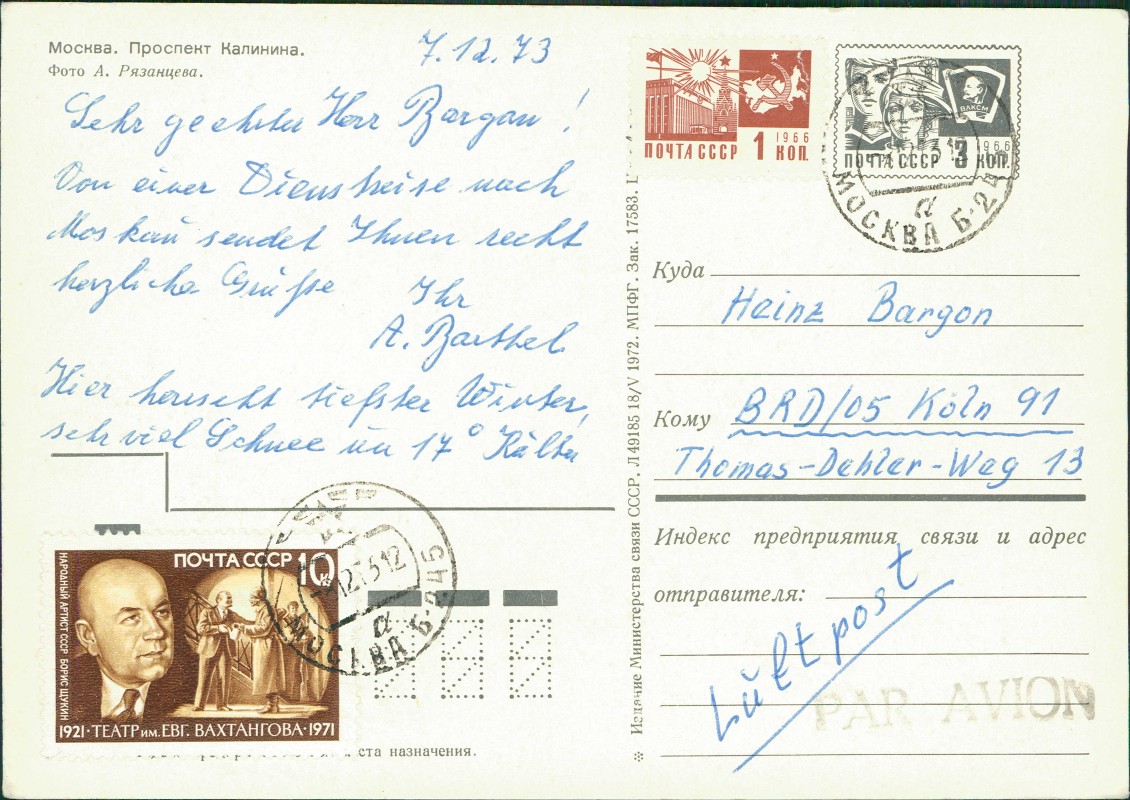 Москва. Проспект Калинина.
Фото А. Рязанцева.
7.12.73
Sehr geehrter Herr Bargon!
Von einer Dienstreise nach
Moskau sendet Ihnen recht
herzliche Grüße Ihr
A. Barthel
Hier herrscht tiefster Winter,
sehr viel Schnee un 17° Kälte
ПОЧТА СССР 1 КОП.
1966
ВЛКСМ
1966
ПОЧТА СССР 3 КОП.
МОСКВА Б-24
а
Куда
Heinz Bargon
Кому BRD/05 Köln 91
Thomas-Dehler-Weg 13
Индекс предприятия связи и адрес
отправителя:
Luftpost
PAR AVION
Издание Министерства связи СССР. Л 49185 18/V 1972. МПФГ. Зак. 17583.
ПОЧТА СССР 10
НАРОДНЫЙ АРТИСТ СССР БОРИС ЩУКИН
1921·ТЕАТР им. ЕВГ. ВАХТАНГОВА·1971
12 73 12
а
МОСКВА Б-245
места назначения.